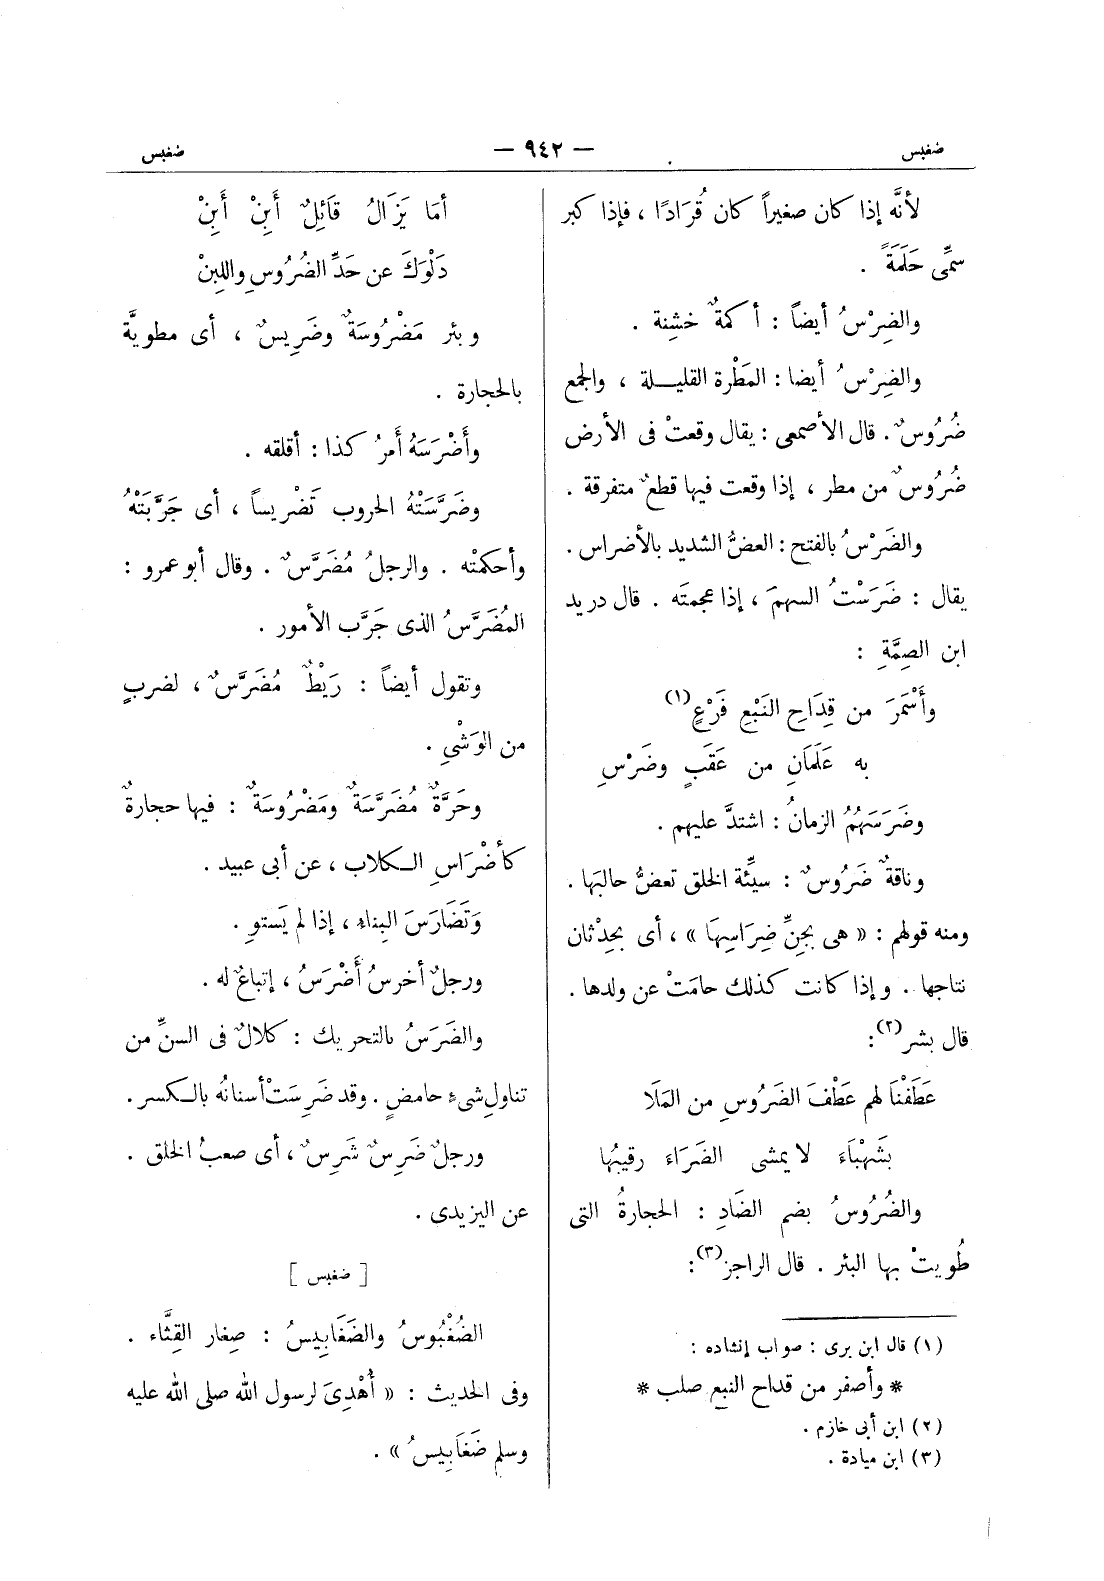 ضغبس
— ٩٤٢ —
ضغبس
لأنَّه إذا كان صغيراً كان قُرَادًا ، فإذا كبر
سمِّى حَلَمَةً .
والضِرْسُ أيضاً : أكمةٌ خشِنة .
والضِرْسُ أيضا : المَطْرة القليلة ، والجمع
ضُرُوسٌ . قال الأصمعى : يقال وقعتْ فى الأرض
ضُرُوسٌ من مطر ، إذا وقعت فيها قطعٌ متفرقة .
والضَرْسُ بالفتح : العضُّ الشديد بالأضراس .
يقال : ضَرَسْتُ السهمَ ، إذا عجمتَه . قال دريد
ابن الصِمَّةِ :
وأَسْمَرَ من قِدَاحِ النَبْعِ فَرْعٍ (١)
به عَلَمَانِ من عَقَبٍ وضَرْسِ
وضَرَسَهُمُ الزمانُ : اشتدَّ عليهم .
وناقةٌ ضَرُوسٌ : سيِّئة الخلق تعضُّ حالبَها .
ومنه قولهم : « هى بجِنِّ ضِرَاسِهَا » ، أى بحِدْثان
نتاجها . وإذا كانت كذلك حامَتْ عن ولدها .
قال بشر (٢) :
عَطَفْنَا لهم عَطْفَ الضَرُوسِ من المَلَا
بشَهْبَاءَ لا يمشى الضَرَاءَ رقيبُها
والضُرُوسُ بضم الضَادِ : الحجارةُ التى
طُويتْ بها البئر . قال الراجز (٣) :
(١) قال ابن برى : صواب إنشاده :
* وأصفر من قداح النبع صلب *
(٢) ابن أبى خازم .
(٣) ابن ميادة .
أمَا يَزَالُ قَائِلٌ أَبِنْ أَبِنْ
دَلْوَكَ عن حَدِّ الضُرُوسِ واللبِنْ
وبئر مَضْرُوسَةٌ وضَرِيسٌ ، أى مطويَّة
بالحجارة .
وأَضْرَسَهُ أَمرُ كذا : أقلقه .
وضَرَّسَتْهُ الحروب تَضْرِيساً ، أى جَرَّبَتْهُ
وأحكمْته . والرجلُ مُضَرَّسٌ . وقال أبو عمرو :
المُضَرَّسُ الذى جَرَّب الأمور .
وتقول أيضاً : رَيْطٌ مُضَرَّسٌ ، لضربٍ
من الوَشْىِ .
وحَرَّةٌ مُضَرَّسَةٌ ومَضْرُوسَةٌ : فيها حجارةٌ
كأَضْرَاسِ الكلاب ، عن أبى عبيد .
وَتَضَارَسَ البِناء ، إذا لم يَستوِ .
ورجلٌ أخرسُ أَضْرَسُ ، إتباعٌ له .
والضَرَسُ بالتحريك : كلالٌ فى السنِّ من
تناولِ شىءٍ حامضٍ . وقد ضَرِسَتْ أسنانُه بالكسر .
ورجلٌ ضَرِسٌ شَرِسٌ ، أى صعبُ الخلق .
عن اليزيدى .
[ ضغبس ]
الضُغْبُوسُ والضَغَابِيسُ : صِغار القِثَّاء .
وفى الحديث : « أُهْدِىَ لرسول الله صلى الله عليه
وسلم ضَغَابِيسُ » .